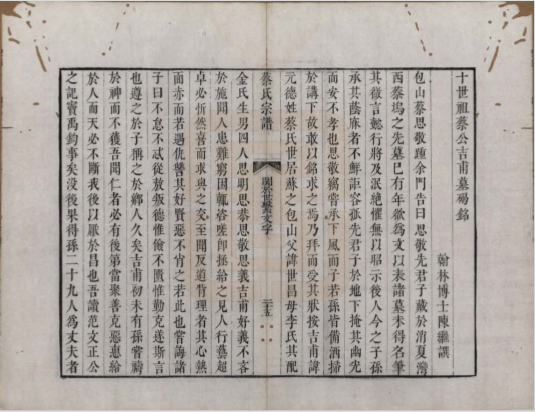 十世祖蔡公吉甫墓碣銘
翰林博士陳繼譔
包山蔡思敬踵余門告曰思敬先君子藏於消夏灣
西蔡塢之先墓巳有年欲爲文以表諸墓未得名筆
其徽言懿行將及泯絶懼無以昭示後人今之子孫
承其蔭庥者不鮮詎容孤先君子於地下掩其幽光
而安不孝也思敬竊嘗承下風而子若孫皆備洒掃
於講下故敢以銘求之焉乃拜而受其狀按吉甫諱
元德姓蔡氏世居蘇之包山父諱世昌母李氏其配
蔡氏宗譜
闕
世
文字
三十五
金氏生男四人思明思恭思敬思義吉甫好義不吝
於施聞人患難窮困輒咨嗟卽拯給之見人行藝超
卓必忻然喜而求與之交至聞反道背理者其心熱
而赤而若遇仇讐其好賢惡不肖之若此也嘗誨諸
子曰不怠不忒從放叛德惟儉不匱惟勤克遂斯言
也遵之於子孫之於鄉人久矣吉甫初未有孫嘗禱
於神而不獲吾聞仁者必有後第當聚善克惡惠給
於人而天必不斬我後以厥於昌也吾讀范文正公
之記竇禹鈞事矣没後果得孫二十九人爲丈夫者